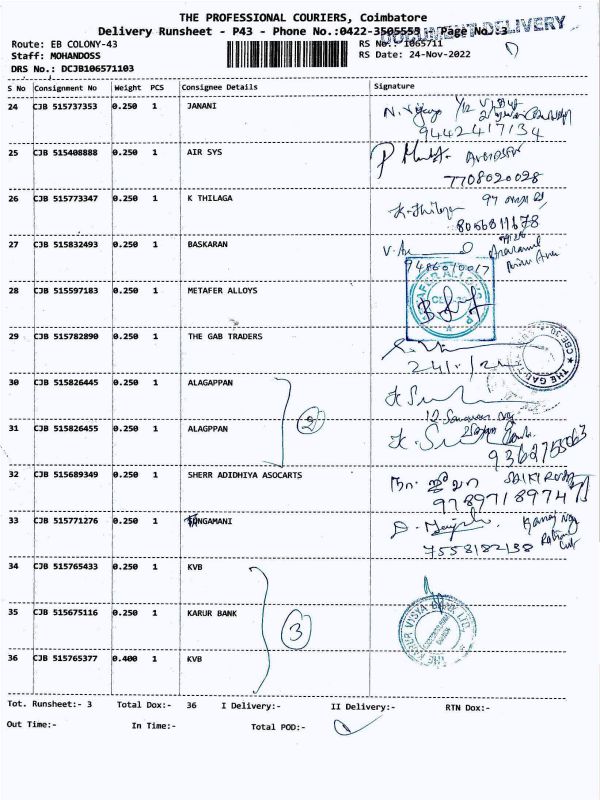 THE PROFESSIONAL COURIERS, Coimbatore
DOCUMENT DELIVERY
Delivery Runsheet - P43 - Phone No.:0422-3505553 Page No.:3
Route: EB COLONY-43
RS No.: 1065711
Staff: MOHANDOSS
RS Date: 24-Nov-2022
DRS No.: DCJB106571103
S No Consignment No Weight PCS Consignee Details Signature
24 CJB 515737353 0.250 1 JANANI
9442417134
25 CJB 515408888 0.250 1 AIR SYS
7708020028
26 CJB 515773347 0.250 1 K THILAGA
K. Thilaga
27 CJB 515832493 0.250 1 BASKARAN
28 CJB 515597183 0.250 1 METAFER ALLOYS
29 CJB 515782890 1 THE GAB TRADERS
30 CJB 515826445 0.250 1 ALAGAPPAN
2
31 CJB 515826455 0.250 1 ALAGPPAN
9362755063
32 CJB 515689349 0.250 1 SHERR ADIDHIYA ASOCARTS
33 CJB 515771276 0.250 1
7558182138
34 CJB 515765433 0.250 1 KVB
35 CJB 515675116 0.250 1 KARUR BANK
3
36 CJB 515765377 0.400 1 KVB
Tot. Runsheet:- 3 Total Dox:- 36 I Delivery:- II Delivery:- RTN Dox:-
Out Time:- In Time:- Total POD:-